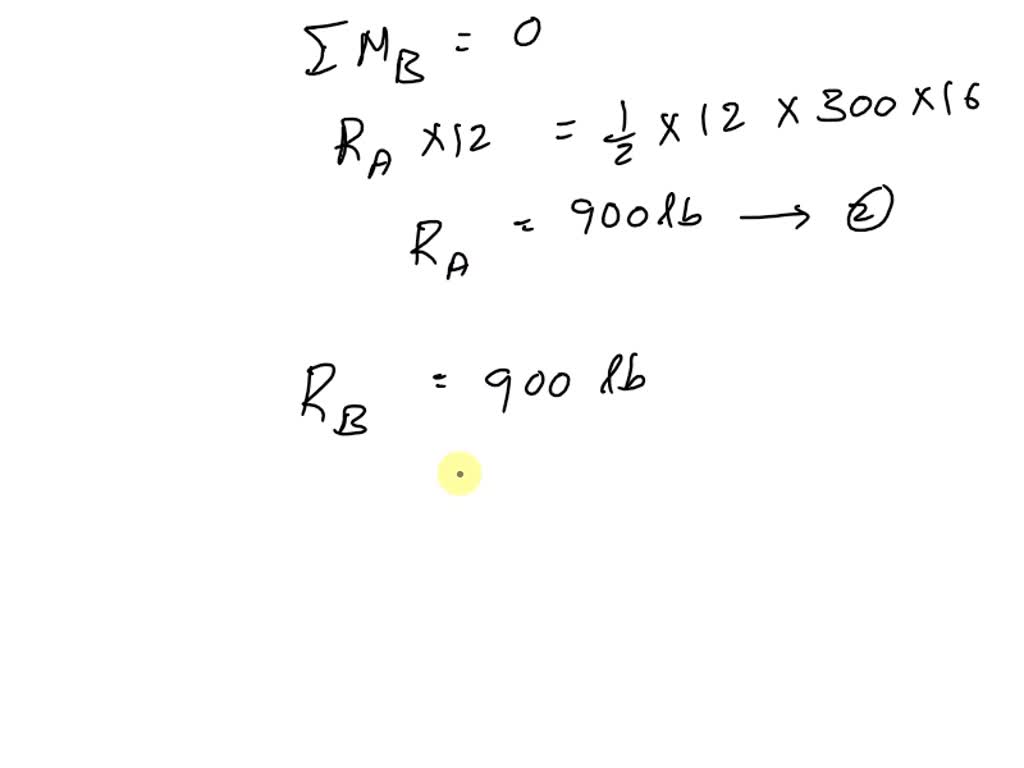 ΣM_B = 0
R_A × 12 = 1/2 × 12 × 300 × 16
R_A = 900 lb → ②
R_B = 900 lb